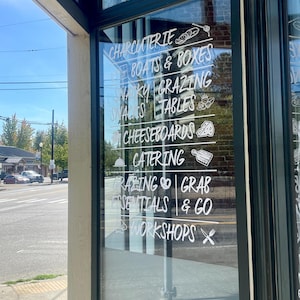 CHARCUTERIE
BOATS & BOXES
GRAZING
TABLES
CHEESEBOARDS
CATERING
GRAZING | GRAB
ESSENTIALS | & GO
WORKSHOPS